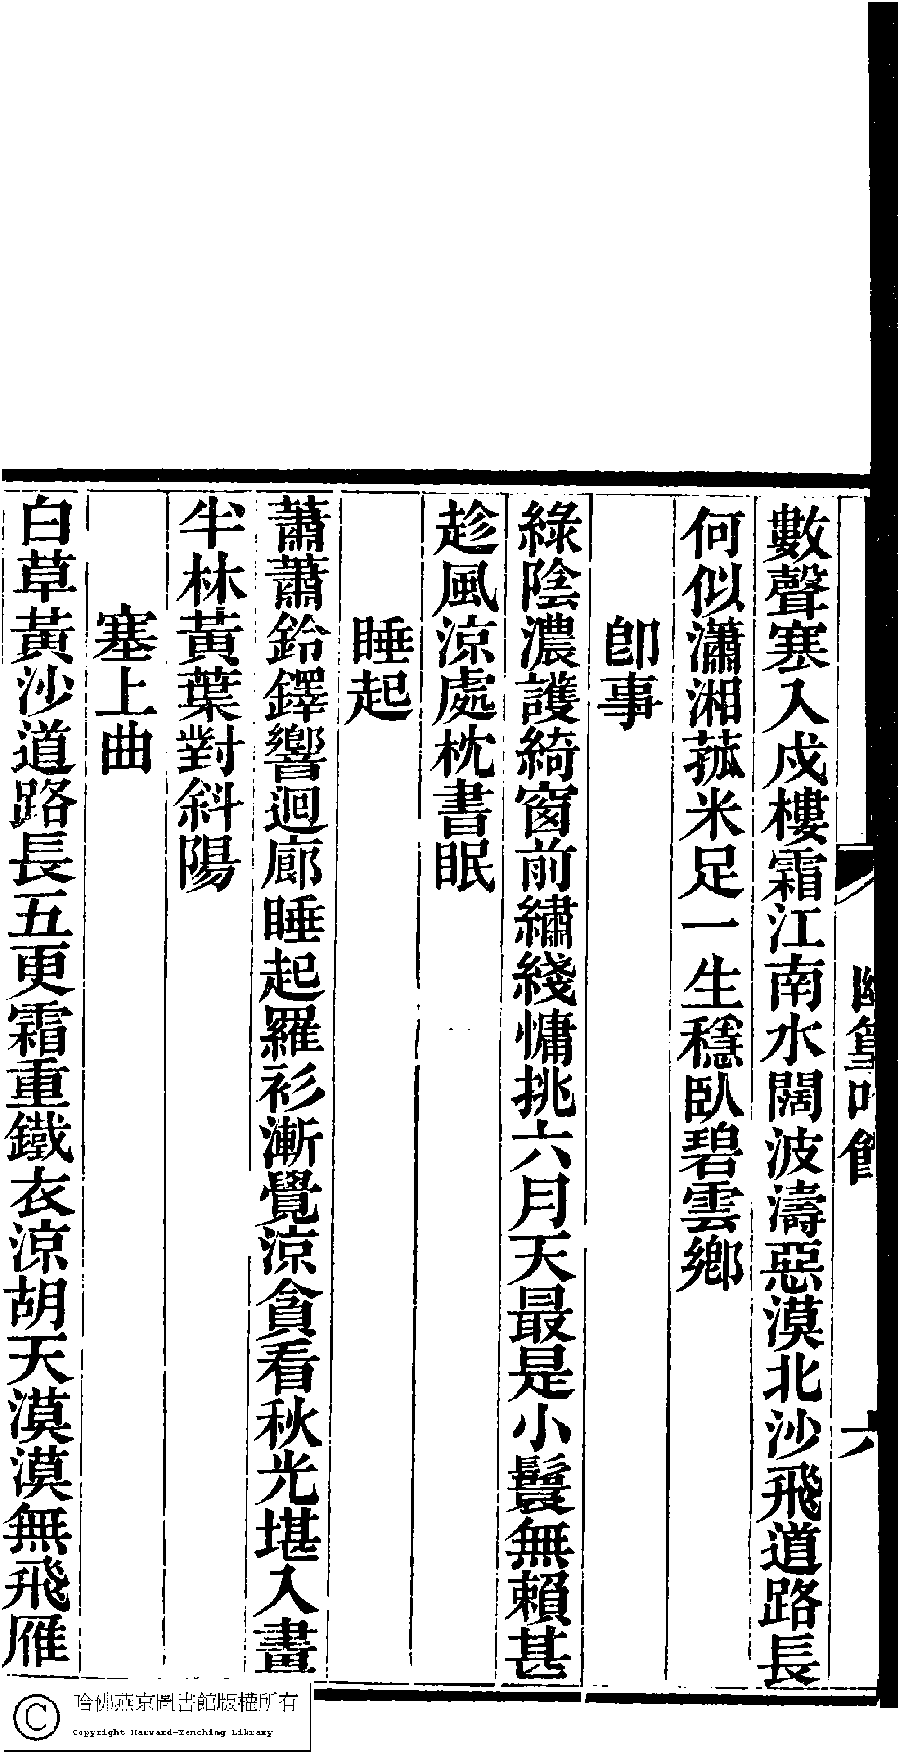 數聲寒入戍樓霜江南水闊波濤惡漠北沙飛道路長
何似瀟湘菰米足一生穩臥碧雲鄉
卽事
綠陰濃護綺窗前繡綫慵挑六月天最是小鬟無賴甚
趁風涼處枕書眠
睡起
蕭蕭鈴鐸響迴廊睡起羅衫漸覺涼貪看秋光堪入畫
半林黃葉對斜陽
塞上曲
白草黃沙道路長五更霜重鐵衣涼胡天漠漠無飛雁
哈佛燕京圖書館版權所有
Copyright Harvard-Yenching Library